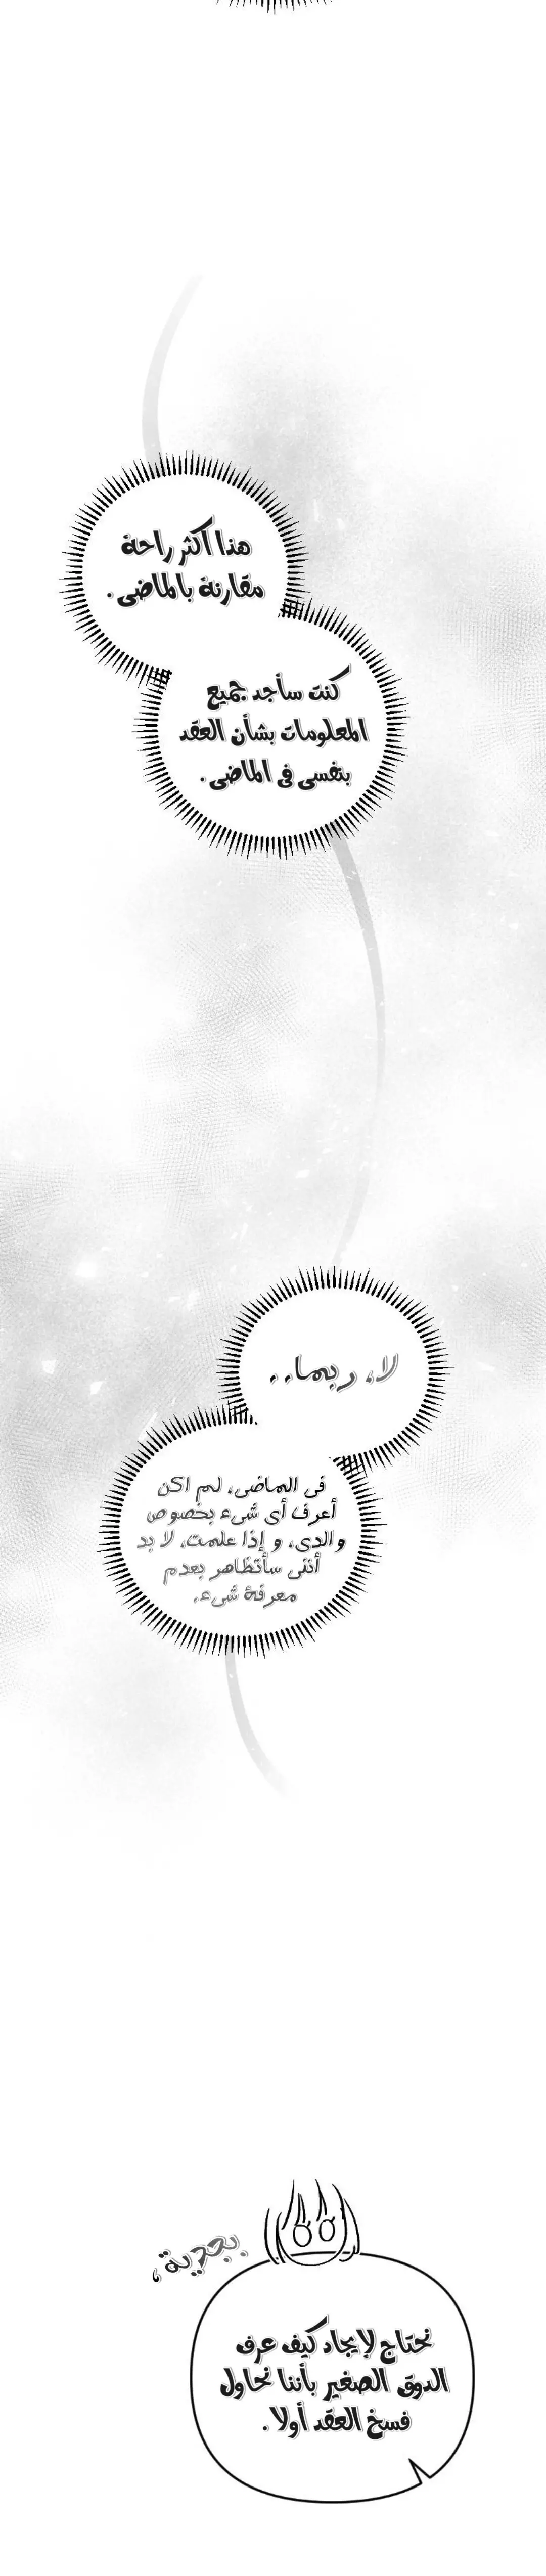 هذا أكثر راحة
مقارنة بالماضى.
كنت سأجد جميع
المعلومات بشأن العقد
بنفسى فى الماضى.
لا، ربما..
فى الماضى، لم اكن
أعرف أى شىء بخصوص
والدى، و إذا علمت، لا بد
أننى سأتظاهر بعدم
معرفة شىء.
بجدية،
نحتاج لإيجاد كيف عرف
الدوق الصغير بأننا نحاول
فسخ العقد أولا.